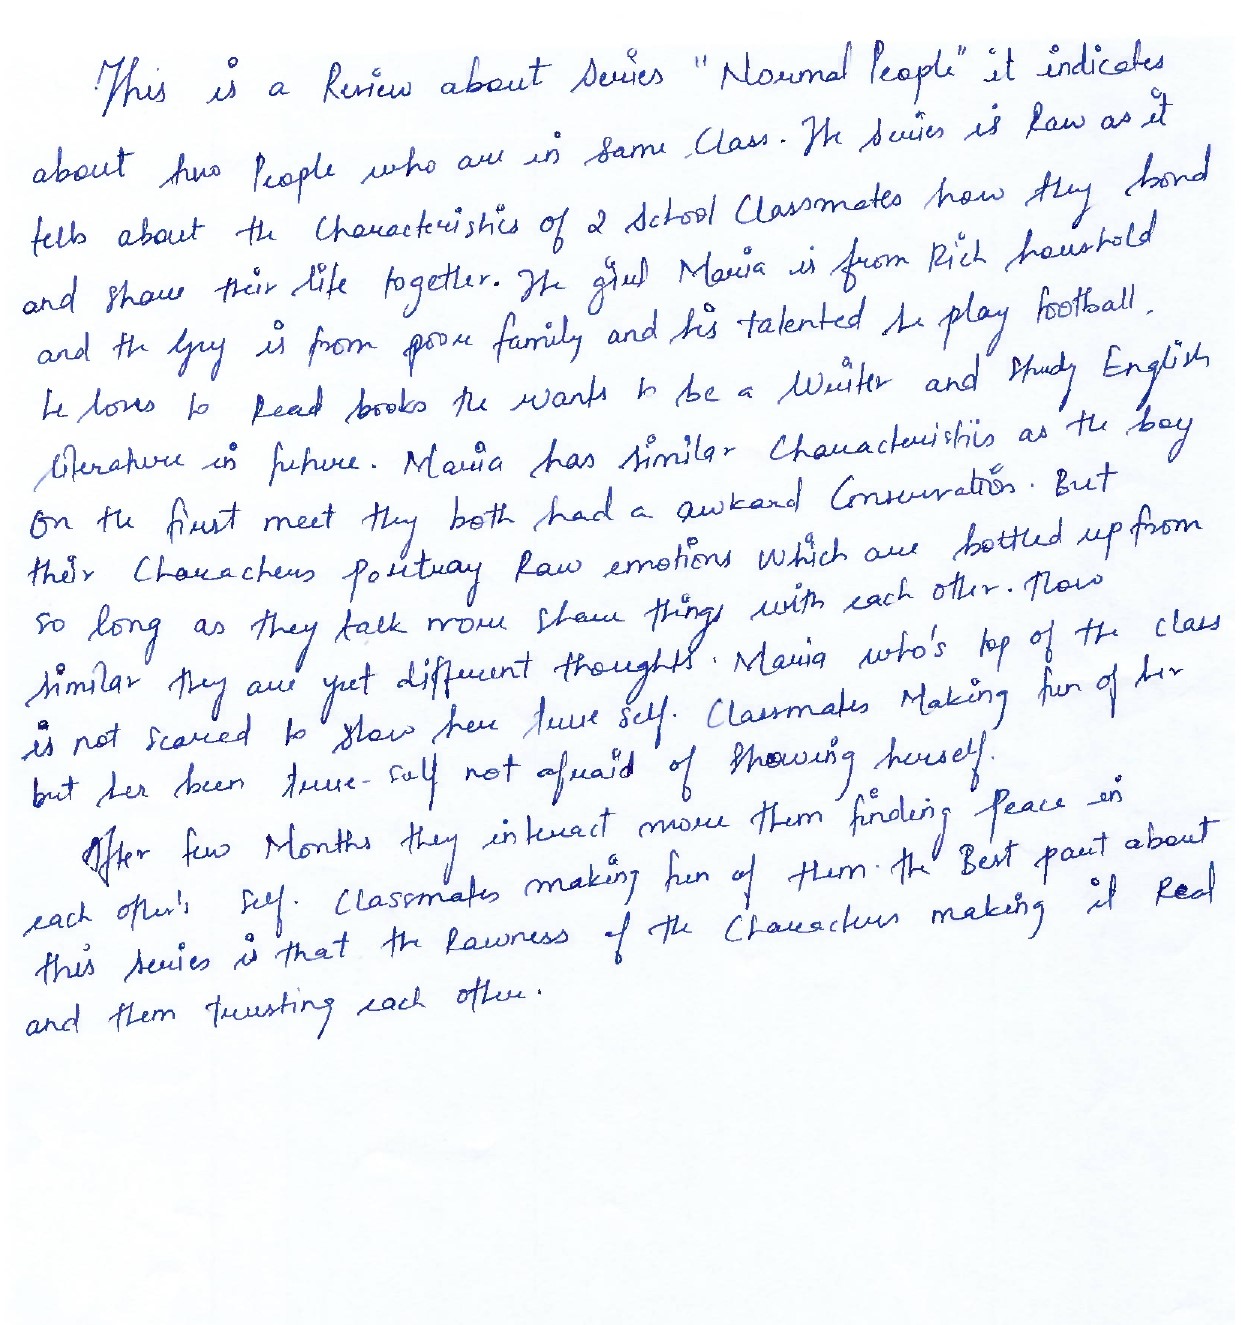 This is a Review about Series "Normal People" it indicates
about two People who are in same Class. The series is Raw as it
tells about the Characteristics of 2 School Classmates how they bond
and share their life together. The girl Maria is from Rich houshold
and the Guy is from poor family and his talented he play football.
he loves to Read books the wants to be a Writer and Study English
literature in future. Maria has similar Characteristics as the boy
On the first meet they both had a awkard Conservation. But
their Characters portray Raw emotions which are bottled up from
so long as they talk more share things with each other. How
similar they are yet different thoughts. Maria who's top of the class
is not scared to show her true self. Classmates Making fun of her
but her been true-self not afraid of Showing herself.
After few Months they interact more them finding Peace in
each other's self. Classmates making fun of them. the Best part about
this series is that the Rawness of the Characters making it Real
and them trusting each other.